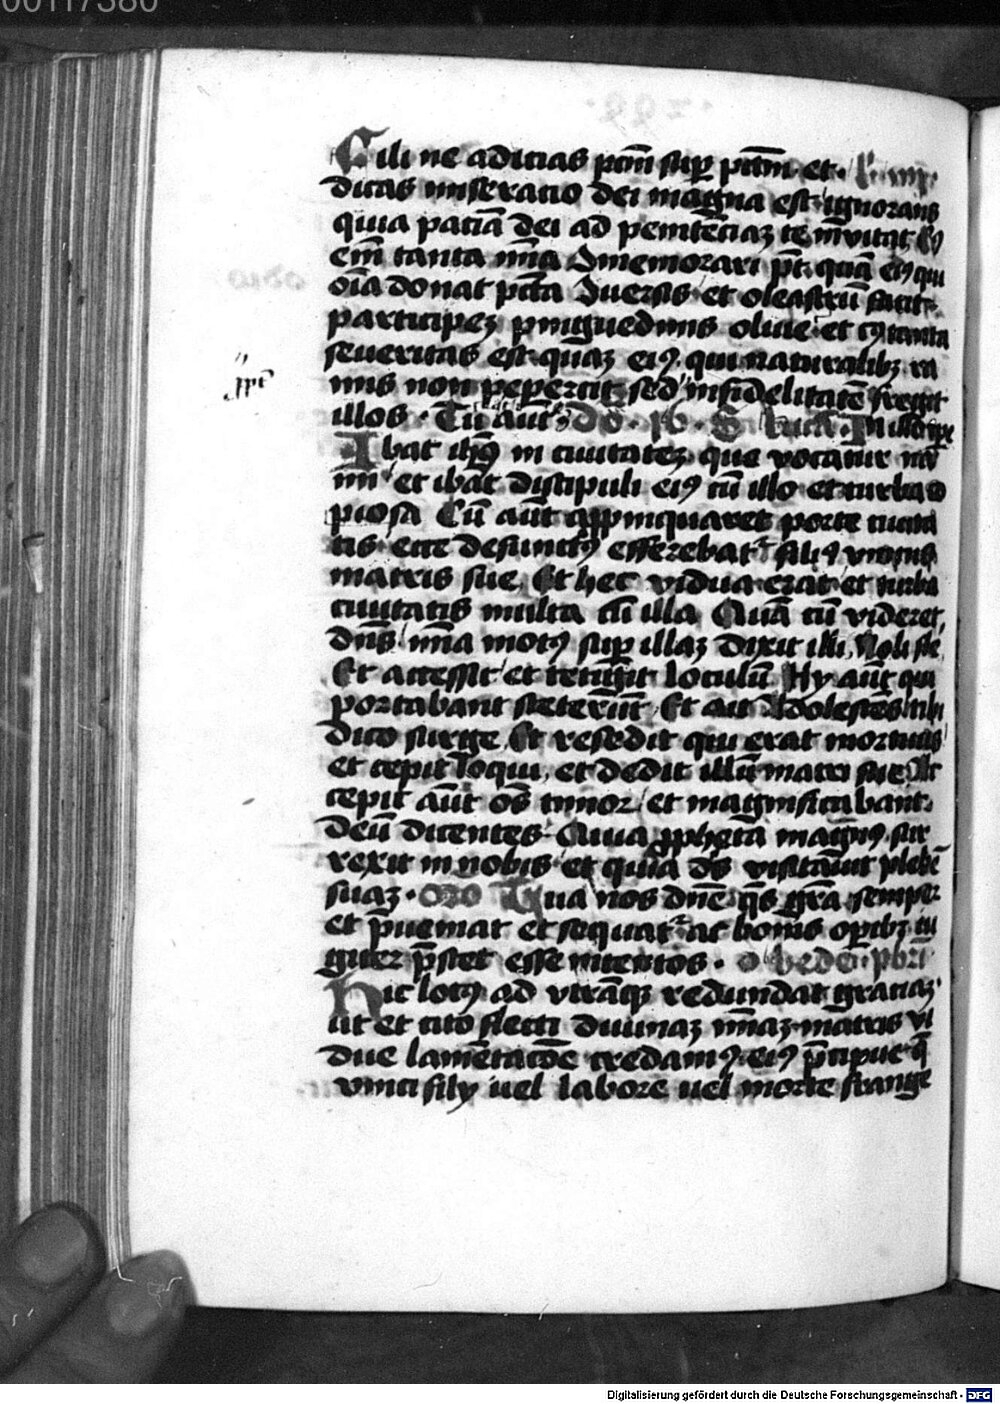 00117380
Fili ne adicias pctm̄ sup pctm̄ et
dicas miseratio dei magna est ignorans
quia paciā dei ad penitēciaz te īnvitat
em̄ tanta mīa ꝯmemorari pt̄ quā eiꝰ qui
oīa donat pctā ꝯversis et oleastrū facit
participez pinguedinis olive et cꝰ tanta
severitas est quaz eiꝰ qui naturalibꝫ ra
mis non pepercit sed infidelitatē fregit
illos . Tu aūt Do .
Ibat ihūs in civitatez que vocatur na
im et ibāt discipuli eiꝰ cū illo et turba co
piosa Cū aūt appinquaret porte civita
tis ecce defunctꝰ efferebat filiꝰ unicus
matris sue Et hec vidua erat et turba
civitatis multa cū illa Quā cū videret
dn̄s mīa motꝰ sup illaz dixit illi Noli fle
Et accessit et tetigit loculū Hy aūt qui
portabant steterūt Et ait Adolescēs tibi
dico surge Et resedit qui erat mortuus
et cepit loqui et dedit illū matri sue
cepit aūt ōs timor et magnificabant
deū dicentes Quia ꝓpheta magnꝰ sur
rexit in nobis et quia dš visitavit plebē
suaz . Oro Tua nos dn̄e q̄s grā semper
et p̄veniat et sequat ac bonis opibꝫ iu
giter p̄stet esse intentos . o bede pbri
Hic locꝰ ad utrāqꝫ redundat graciaz
ut et cito flecti divinaz mīaz matris vi
due lamētatōe credamꝰ eiꝰ p̄cipue q̄
vinci fily uel labore uel morte frange
Digitalisierung gefördert durch die Deutsche Forschungsgemeinschaft - DFG